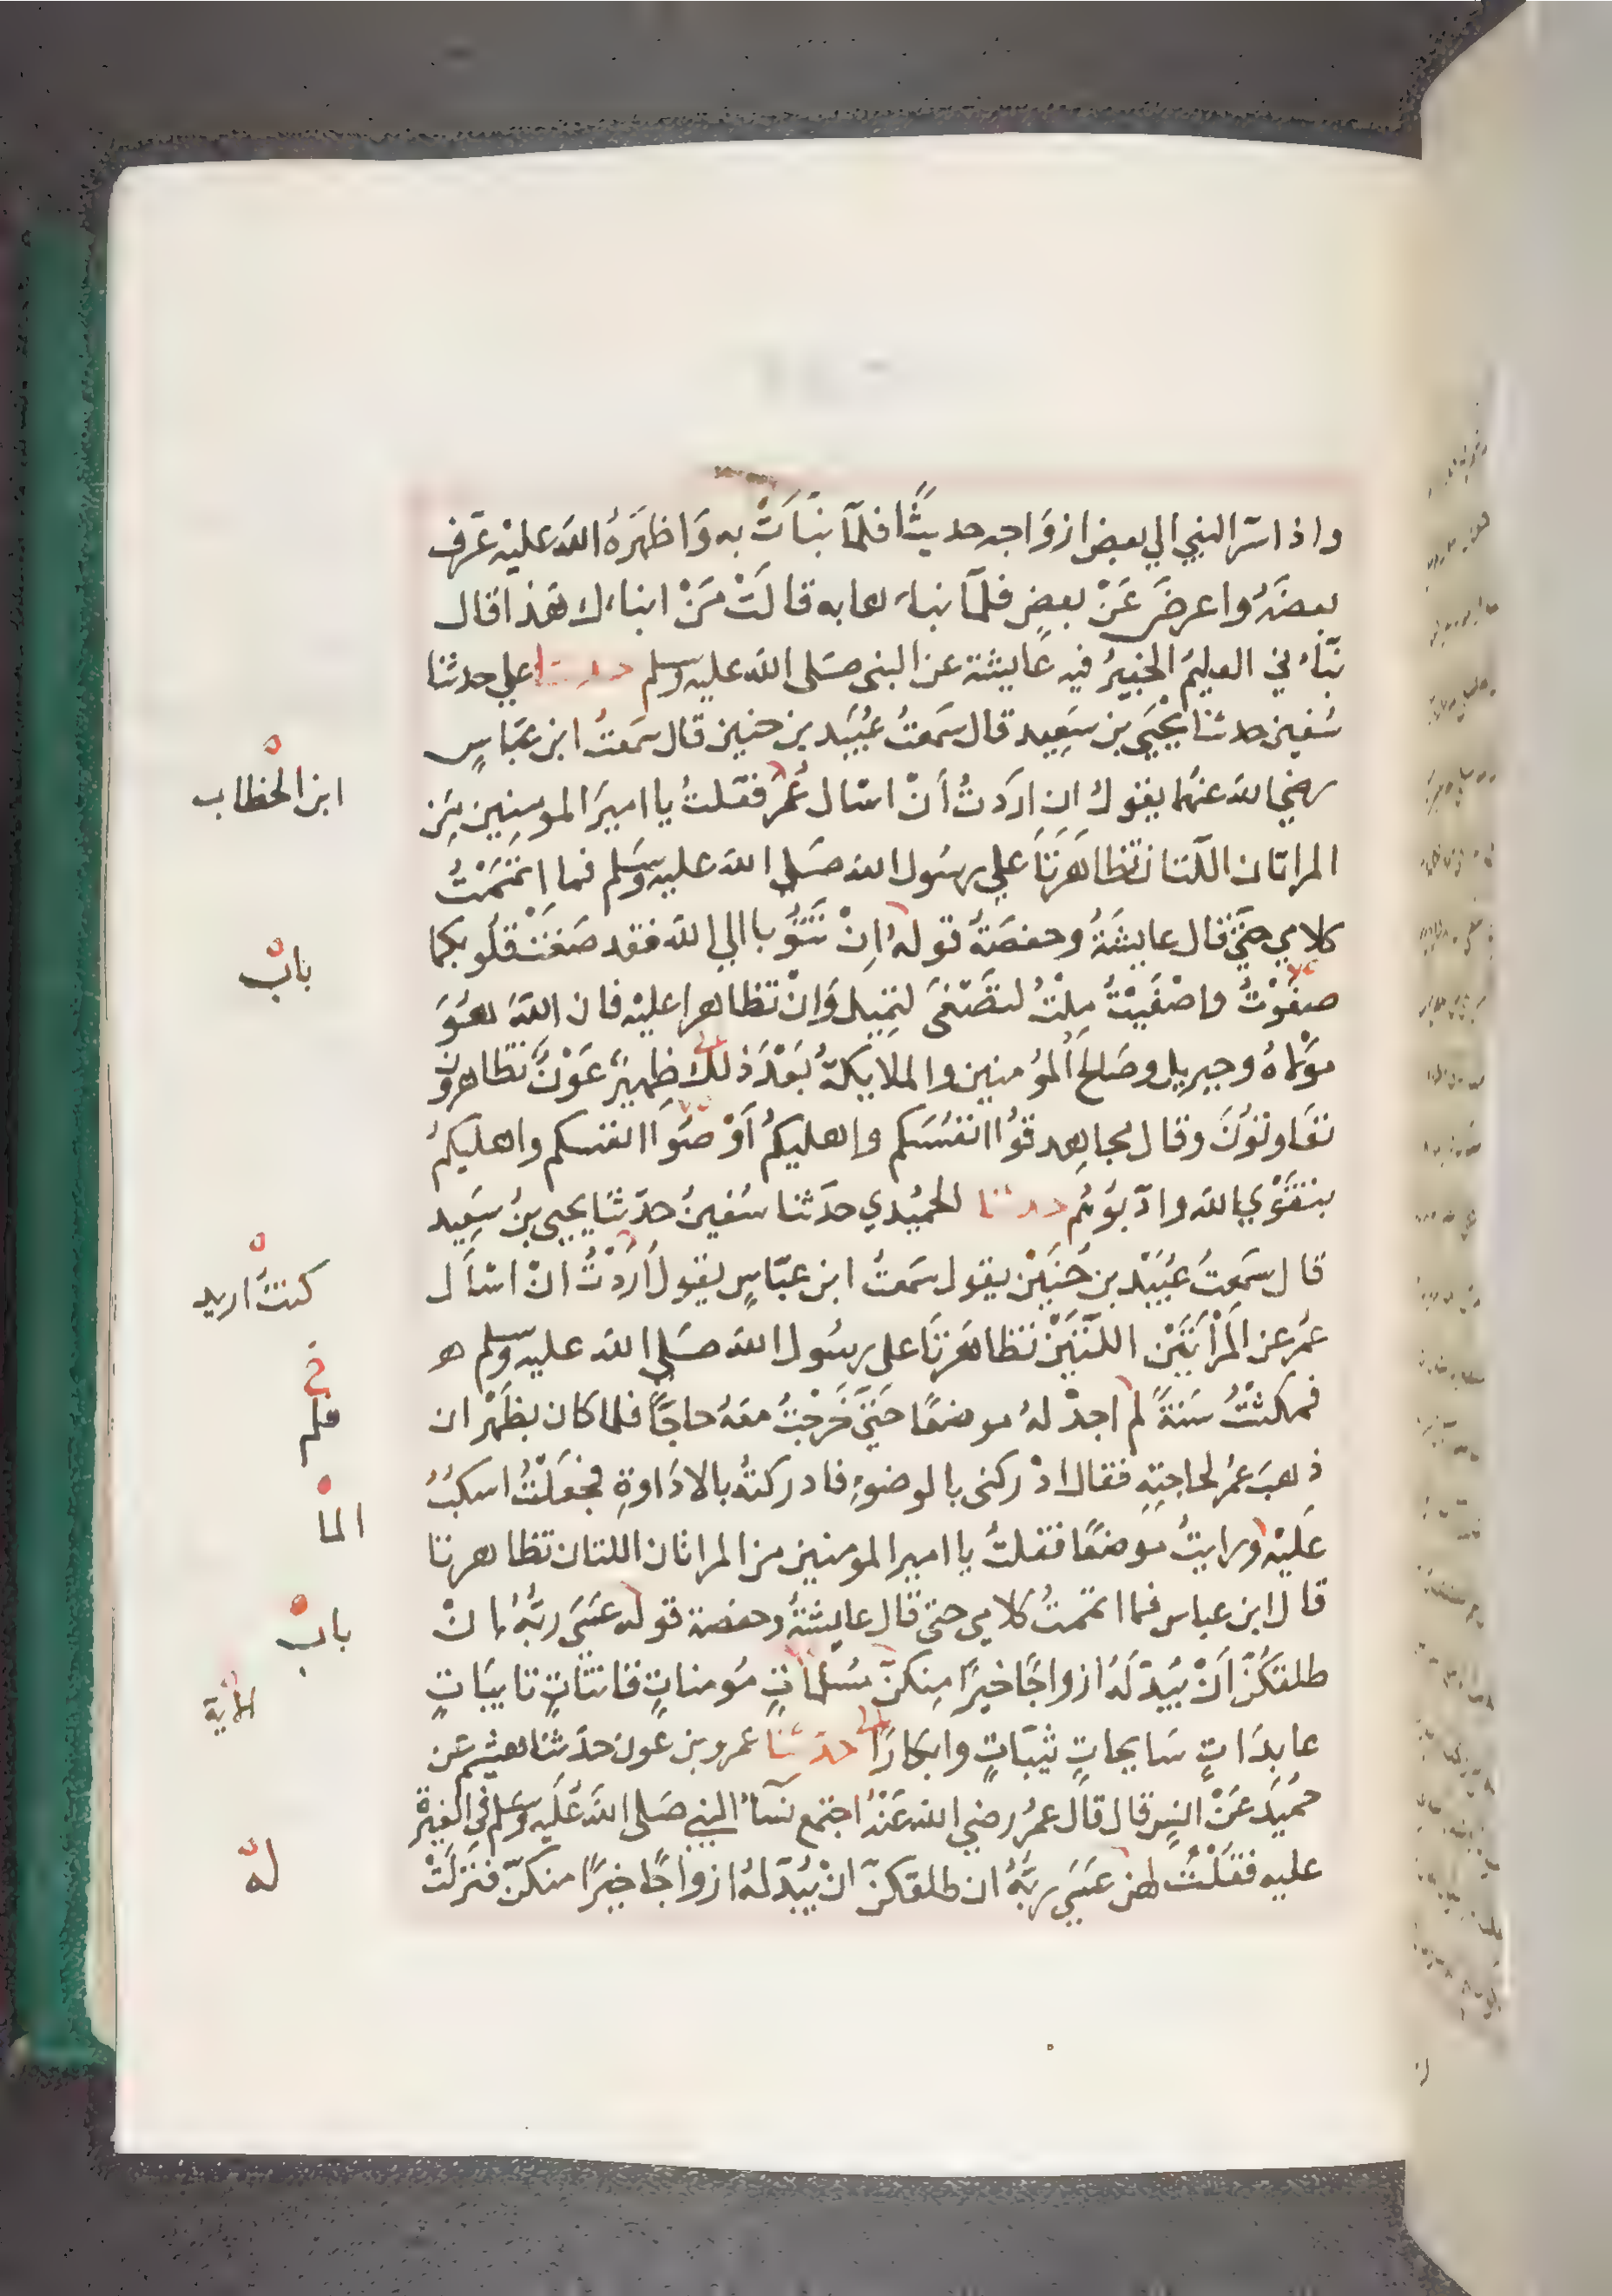 واذا اسرّ النبي الي بعض ازوَاجه حديثًا فلمّا نبّاَتْ به وَاظهَرَهُ الله عليْه عَرّف
بعضَهُ واعرضَ عَنْ بعضٍ فلمّا نباءَ هابه قالَتْ مَنْ انباءَك هَذا قال
نبّاءَني العليمُ الخبيرُ فيه عايشة عن النبي صَلى الله عليه وسلم حدثنا علي حدثنا
سُفين حدثنا يَحْيَى بن سَعِيد قال سَمعتُ عُبيَد بن حنين قال سَمعتُ ابن عبّاسٍ
رضي الله عنهُما يقول ان ارَدتُ أنْ اسْال عُمَرَ فقلتُ يا اميرَ المومِنين مَن
المراتان اللّتان تظاهَرَتَا علي رسُول الله صَلي الله عليه وسَلم فما اتممْتُ
كلامي حتّى قال عايشَةُ وحفصَةُ قوله اِنْ تتُوبا الي الله فقد صَغَتْ قلُوبكما
صغَوْتُ واصْغَيْتُ مِلْتُ لتصْغَى لتميل وَاِنْ تظاهرا عليْه فان اللهَ هُوَ
موْلاهُ وجبريل وصَالحُ المُؤمنين والملايكةُ بَعْدَ ذلك ظهِيرٌ عَوْنٌ تظاهرون
تعَاونونَ وقال مجاهد قُوا انفسَكم واهليكمُ أوْصُوا انفسكم واهليكمُ
بتقوَي الله وادّبوُهُم حدثنا الحمُيدي حدَثنا سُفينُ حدّثنَا يحيى بنُ سَعِيد
قال سَمعتُ عُبَيْد بن حُنَيْن يقول سَمعتُ ابن عبّاسٍ يقول أَرَدْتُ انْ اسْأَل
عمَر عن المَرْأتَيْن اللتَيْن تَظاهَرتَا على رسُول الله صَلي الله عليه وسلم هو
فمكثتُ سَنَةً لم اجدْ لهُ موضعًا حَتّى خَرجْتُ معَهُ حاجًّا فلما كان بظَهْران
ذهبَ عُمرُ لحاجتِهِ فقال ادْركنى بالوضوءِ فادركتهُ بالادَاوةِ فجعَلْتُ اسكبُ
عَليْه ورايتُ موضعًا فقلتُ يا امير المومنين من المراتان اللتان تظاهرتا
قال ابن عباس فما اتممتُ كلامي حتى قال عايشةُ وحفصة قوله عَسَى ربّهُ انْ
طلقكُنّ اَنْ يُبدّلَهُ ازواجًا خيرًا مِنكنّ مُسْلماتٍ مُومناتٍ قانتاتٍ تايبَاتٍ
عابدَاتٍ سَايحاتٍ ثيّبَاتٍ وابكارًا حدّثنا عمرو بن عون حدّثنا هشيم عَن
حمُيَد عَنْ انسٍ قال قال عمرُ رضي الله عَنْهُ اجتمع نسآءُ النبي صَلى اللهُ عَليه وَسَلم في الغيرَةِ
عليه فقُلْتُ لهن عَسَي ربّهُ ان طلقكنّ انْ يُبدّلهُ ازواجًا خيرًا منكنّ فنزلَتْ
ابن الخطاب
بابٌ
كنتُ اريد
فلم
الما
بابٌ
الاية
لهُ